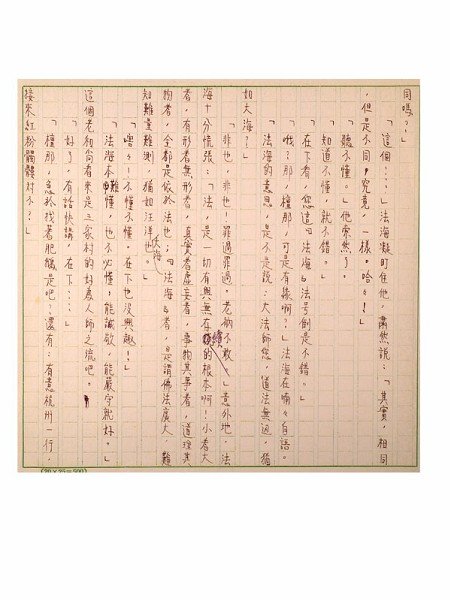 同嗎?」
「這個……」法海凝盯住他，肅然說：「其實，相同
，但是不同，究竟，一樣。哈々！」
「聽不懂。」他索然了。
「知道不懂，就不錯。」
「在下看，您這『法海』法号倒是不錯。」
「哦？檀那，可是有緣啊？」法海在喃々自語。
「法海的意思，是不是說：大法師您，道法無邊，猶
如大海？」
「非也，非也！罪過罪過，老衲不敢。」意外地，法
海十分慌張：「法，是一切有與無存續的根本啊！小者大
者，有形者無形者，真實者虛妄者，事物其事者，道理其
物者，全都是依於法也；『法海』者，是謂佛法廣大，難
知難量難測，猶如汪洋大海也。」
「嘿々！不懂不懂，在下也沒興趣！」
「法海本難懂，也不必懂；能誠敬，能嚴守就好。」
這個老和尚看來是三家村的好為人師之流吧。
「好了，有話快講，在下……」
「檀那，急於找著肥鵝是吧？還有：有意杭州一行，
接來紅粉髑髏對不？」
(20×25=500)